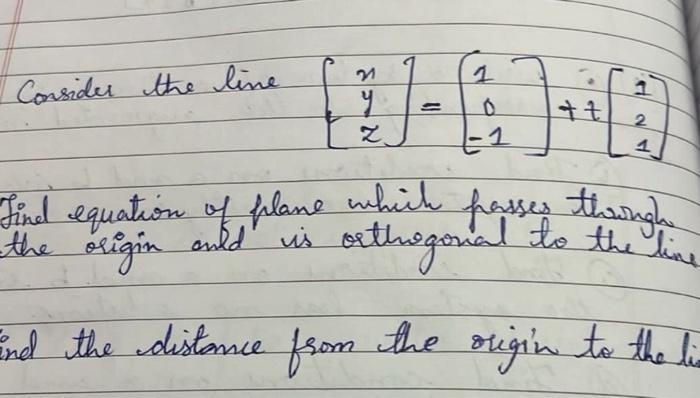 Consider the line [x y z] = [1 0 -1] + t [1 2 1]
Find equation of plane which passes through
the origin and is orthogonal to the line
ind the distance from the origin to the li